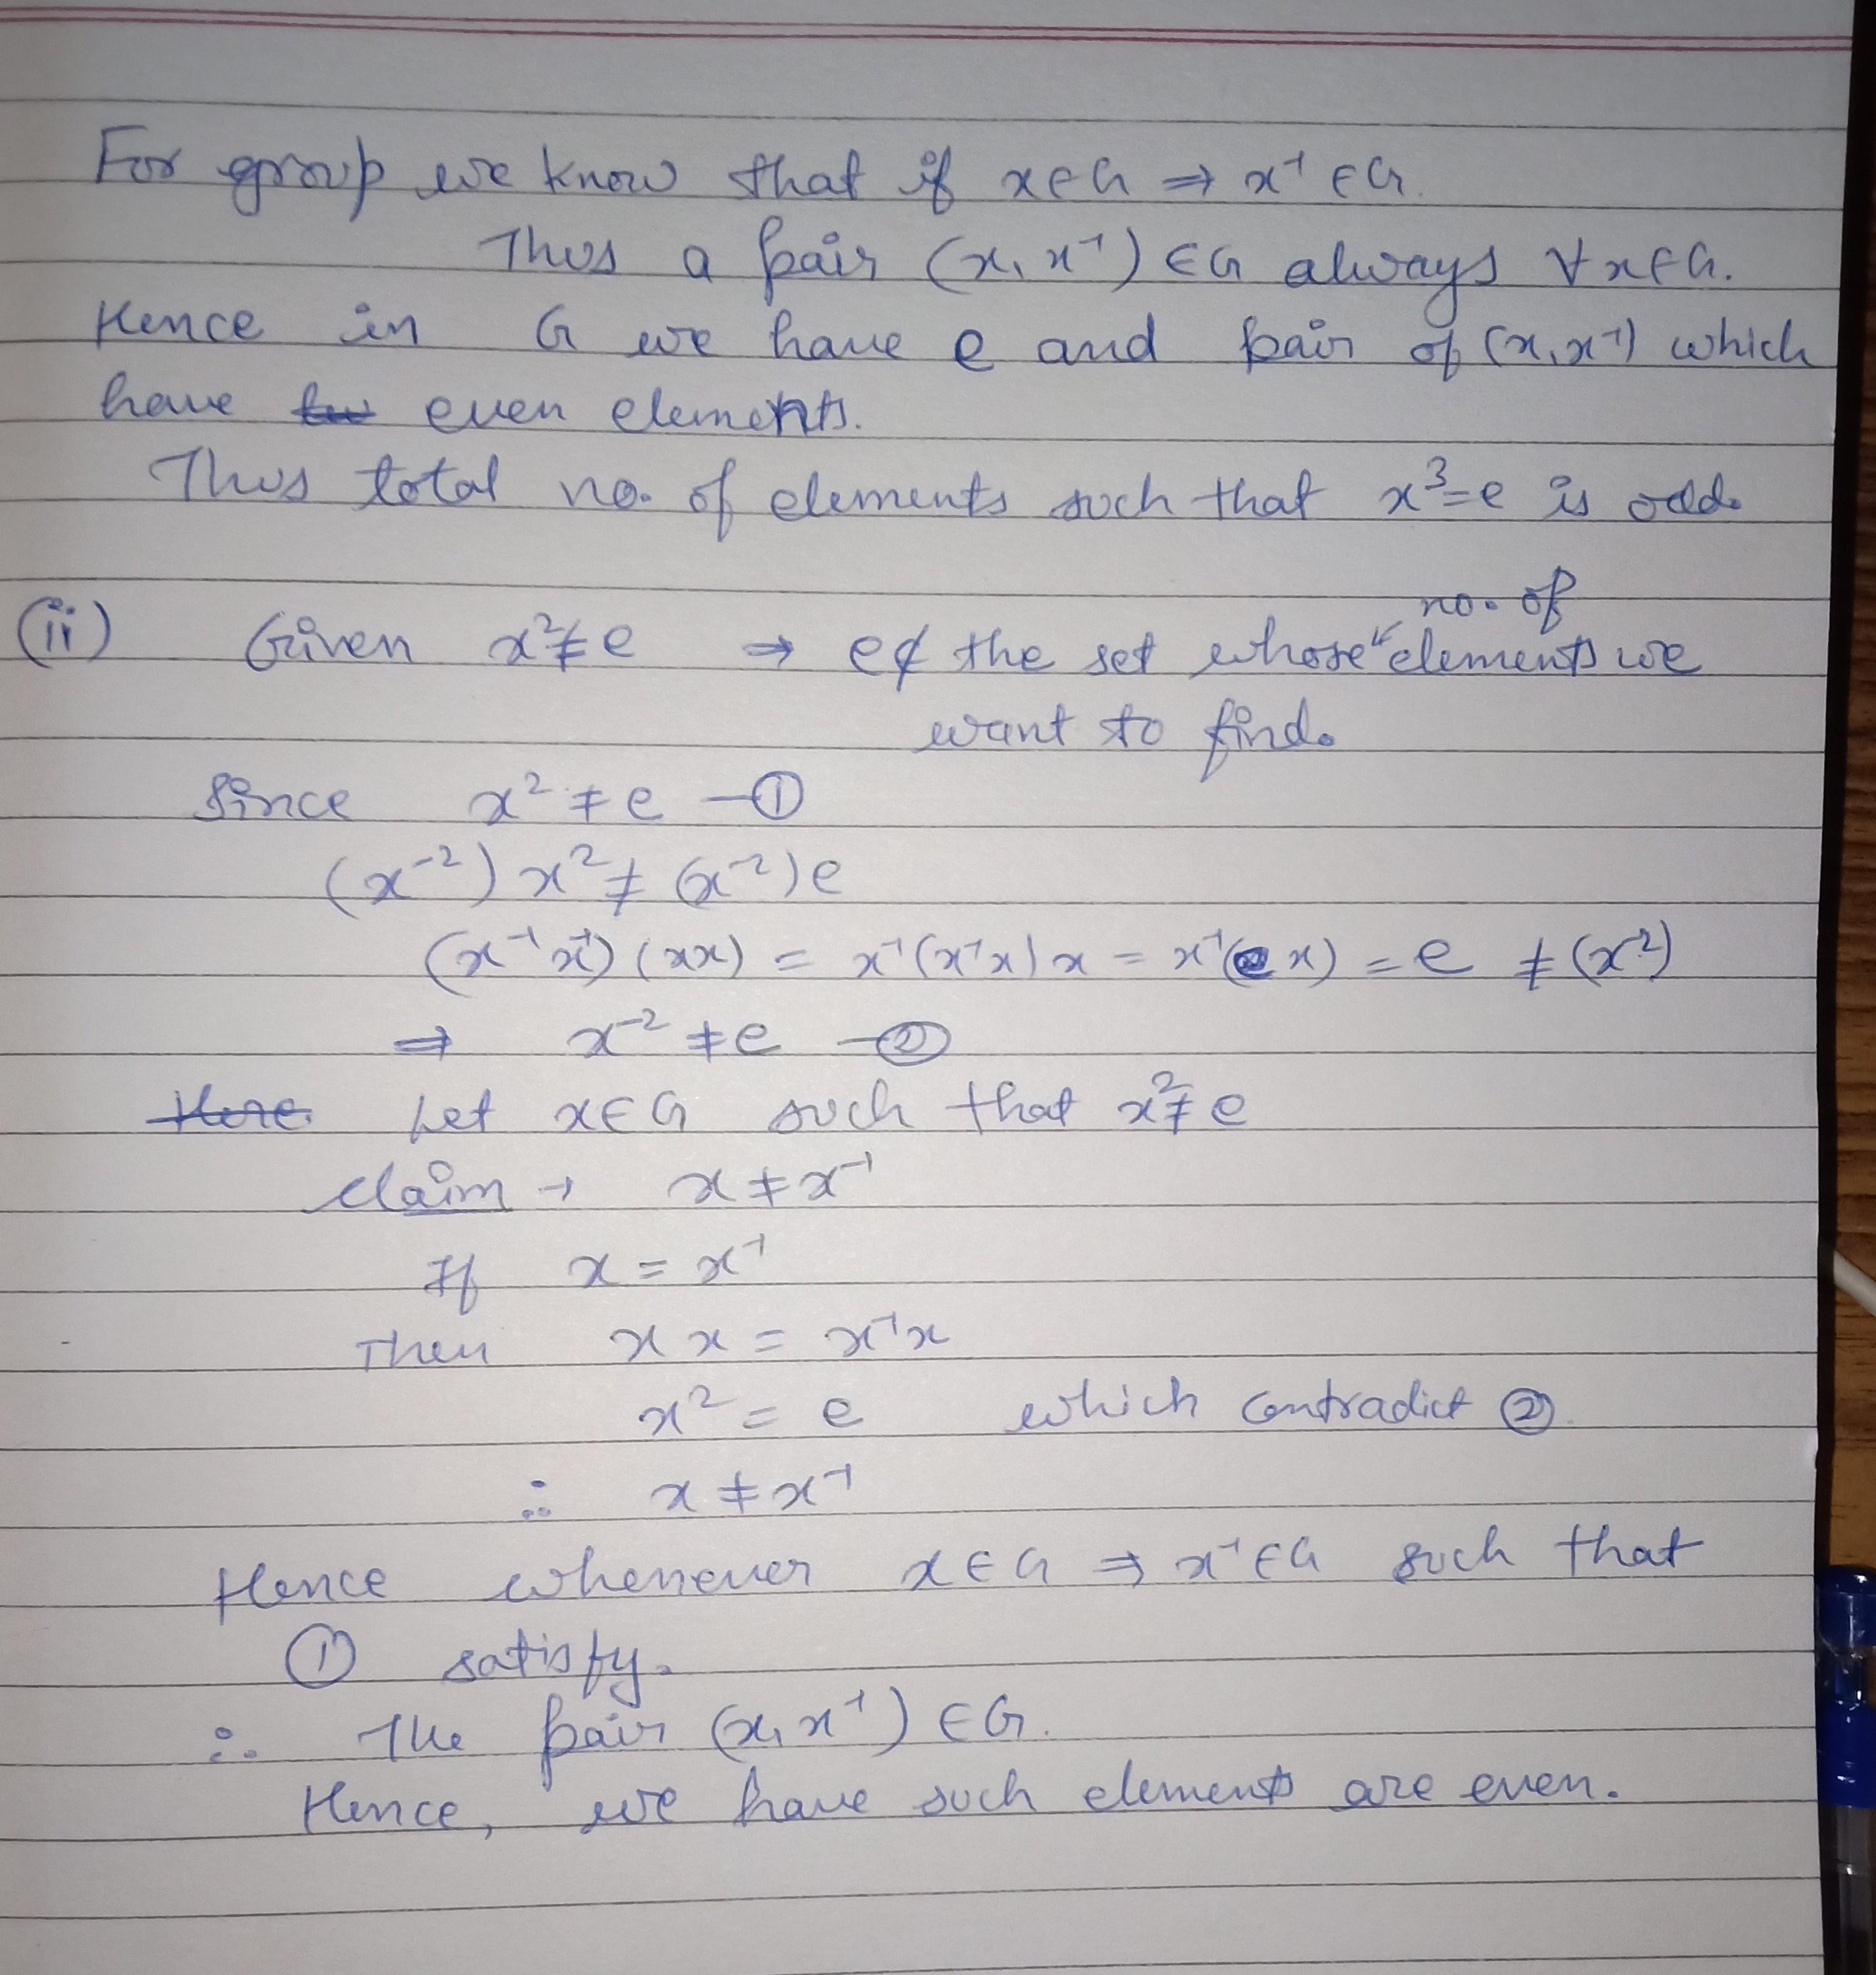 For group we know that if x∈G ⇒ x⁻¹ ∈G.
Thus a pair (x, x⁻¹) ∈G always ∀x∈G.
Hence in G we have e and pair of (x, x⁻¹) which
have even elements.
Thus total no. of elements such that x³=e is odd.
(ii) Given x²≠e ⇒ e∉ the set whose no. of elements we
want to find.
Since x² ≠ e —①
(x⁻²) x² ≠ (x⁻²)e
(x⁻¹x⁻¹) (xx) = x⁻¹(x⁻¹x)x = x⁻¹(ex) = e ≠ (x⁻²)
⇒ x⁻² ≠ e —②
Here Let x∈G such that x²≠e
Claim → x≠x⁻¹
If x = x⁻¹
Then x x = x⁻¹x
x² = e which contradict ②.
∴ x ≠ x⁻¹
Hence whenever x∈G ⇒ x⁻¹∈G such that
① satisfy.
∴ The pair (x, x⁻¹) ∈G.
Hence, we have such elements are even.